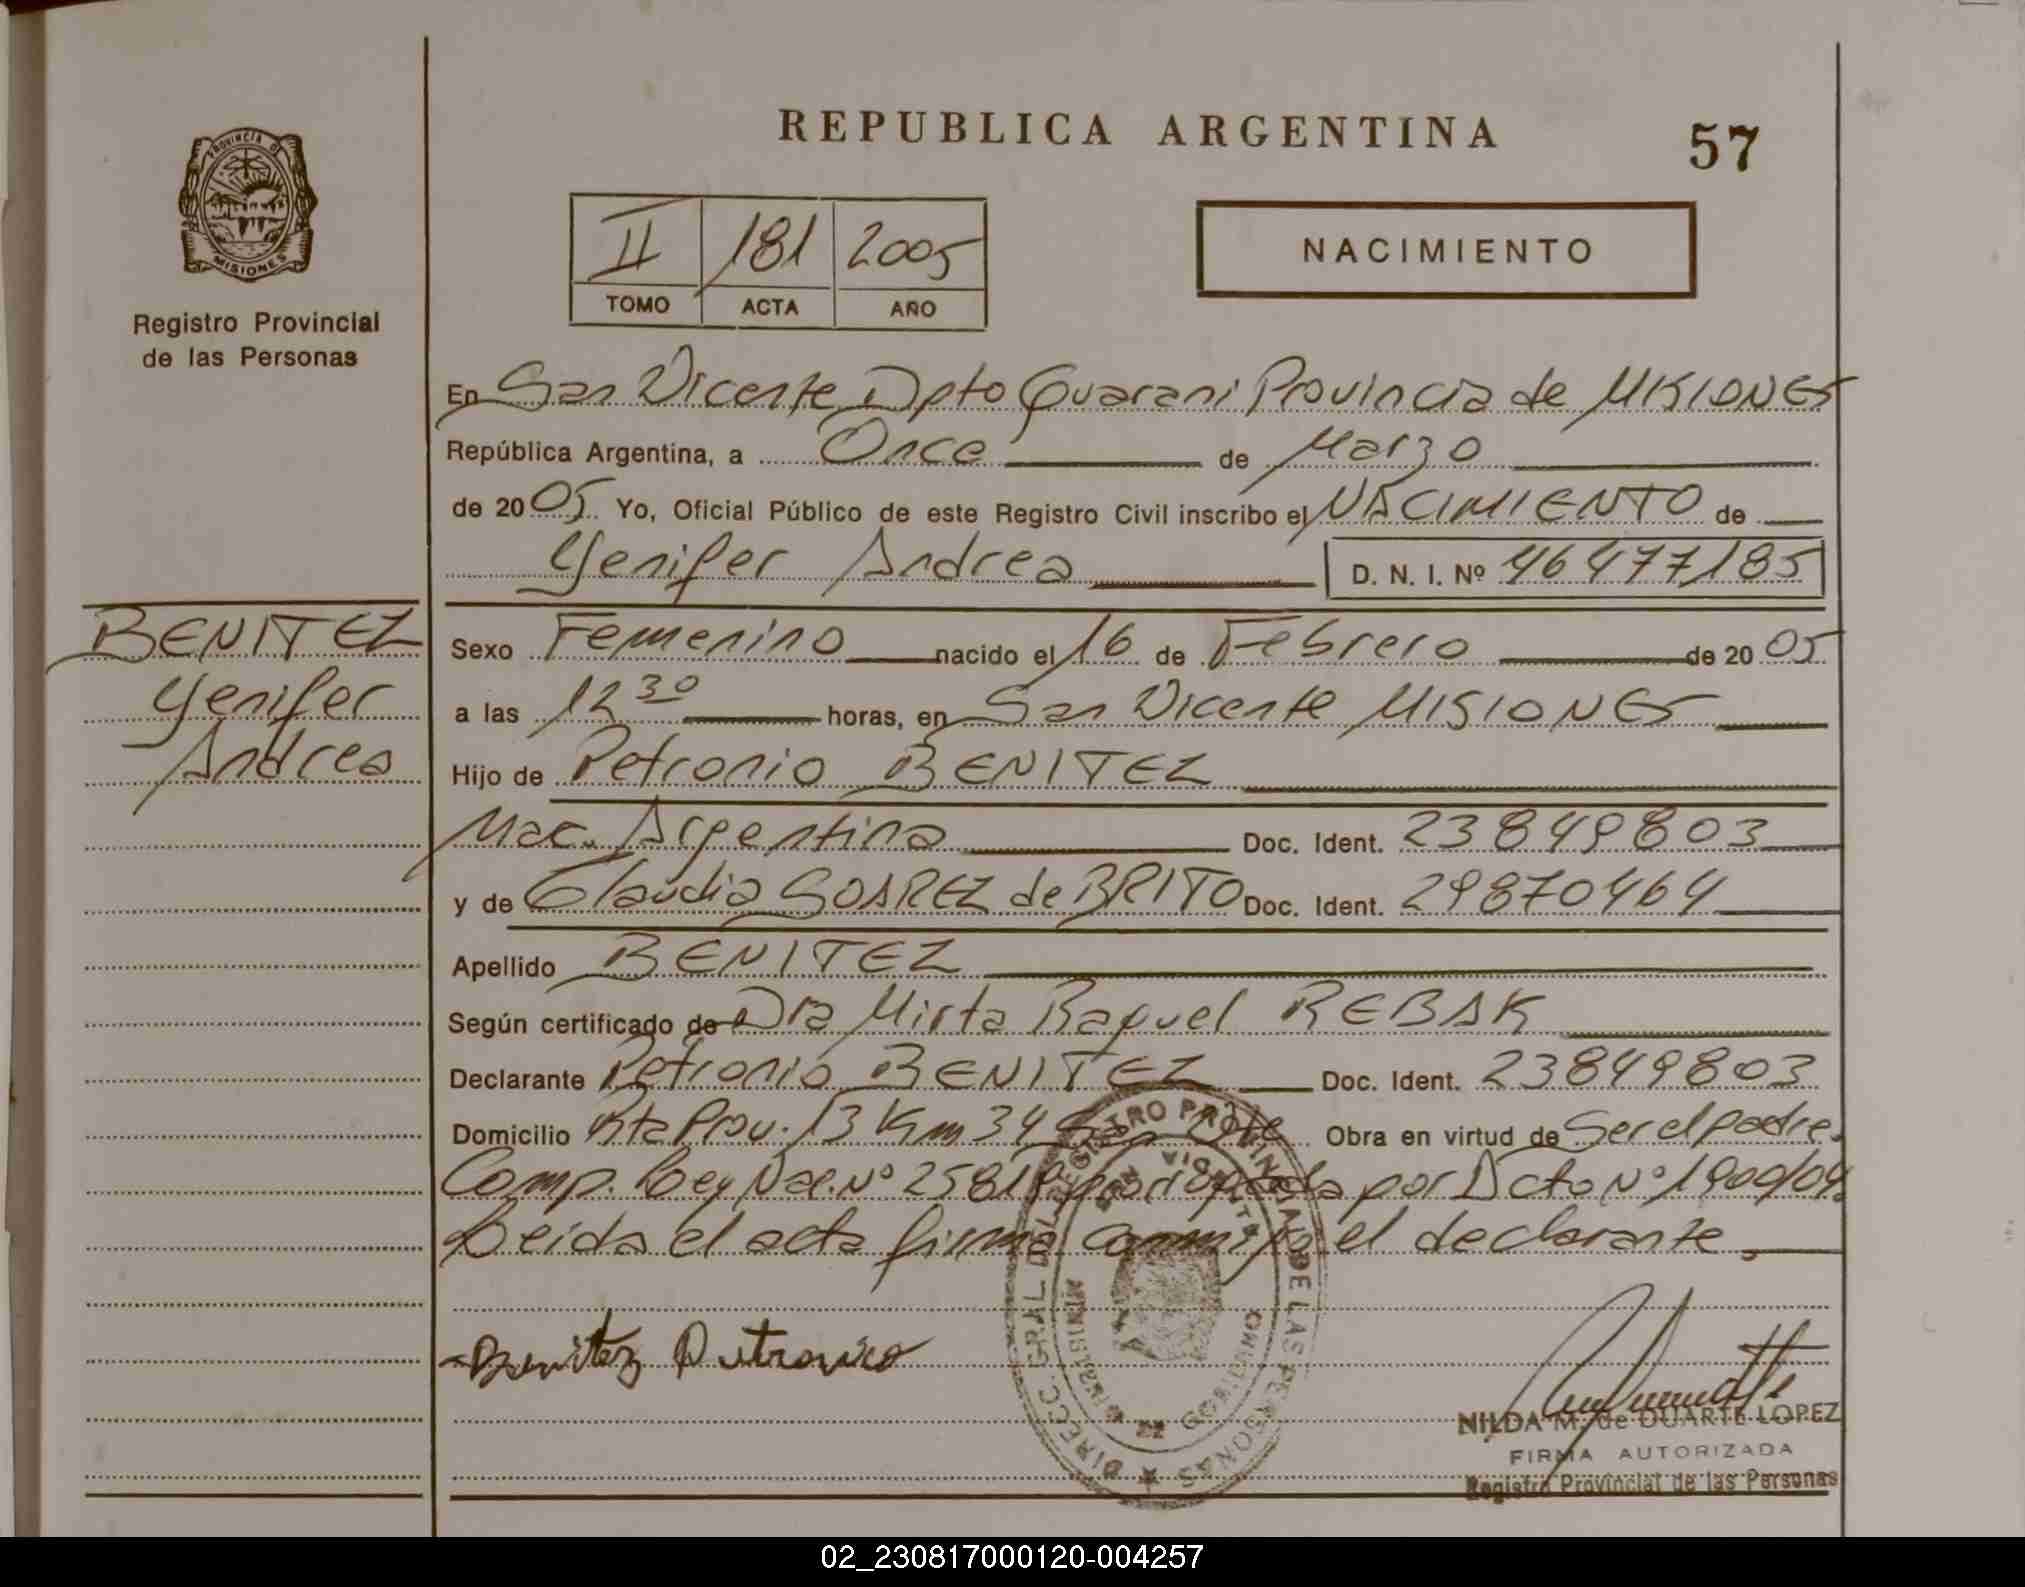 REPUBLICA ARGENTINA
57
PROVINCIA D
MISIONES
Registro Provincial
de las Personas
II 181 2005
TOMO ACTA AÑO
NACIMIENTO
En San Vicente Dpto Guarani Provincia de MISIONES
República Argentina, a Once de Marzo
de 2005 Yo, Oficial Público de este Registro Civil inscribo el NACIMIENTO de
Yenifer Andrea D. N. I. Nº 46477185
BENITEZ
Yenifer
Andrea
Sexo Femenino nacido el 16 de Febrero de 2005
a las 12 30 horas, en San Vicente MISIONES
Hijo de Petronio BENITEZ
Nac. Argentina Doc. Ident. 23849803
y de Claudia SOAREZ de BRITO Doc. Ident. 29870464
Apellido BENITEZ
Según certificado de Dra Mirta Raquel REBAK
Declarante Petronio BENITEZ Doc. Ident. 23849803
Domicilio Rta Prov. 13 Km 34 San Vte Obra en virtud de Ser el padre.
Comp. Ley Nac. Nº 25819 por Dcto Nº 1900/04.
Leida el acta firma conmigo el declarante,
Benitez Petronio
DIRECC. GRAL. DEL REGISTRO PROVINCIAL DE LAS PERSONAS
SAN VICENTE
MINISTERIO DE GOBIERNO
NILDA M. de DUARTE LOPEZ
FIRMA AUTORIZADA
Registro Provincial de las Personas
02_230817000120-004257